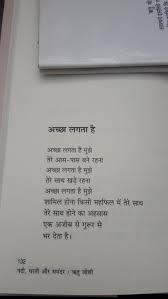 अच्छा लगता है
अच्छा लगता है मुझे
तेरे आस-पास बने रहना
अच्छा लगता है मुझे
तेरे साथ खड़े रहना
अच्छा लगता है मुझे
शामिल होना किसी महफिल में तेरे साथ
तेरे साथ होने का अहसास
एक अजीब से गुरूर से
भर देता है।
102
नदी, धरती और समंदर / ऋतु जोशी